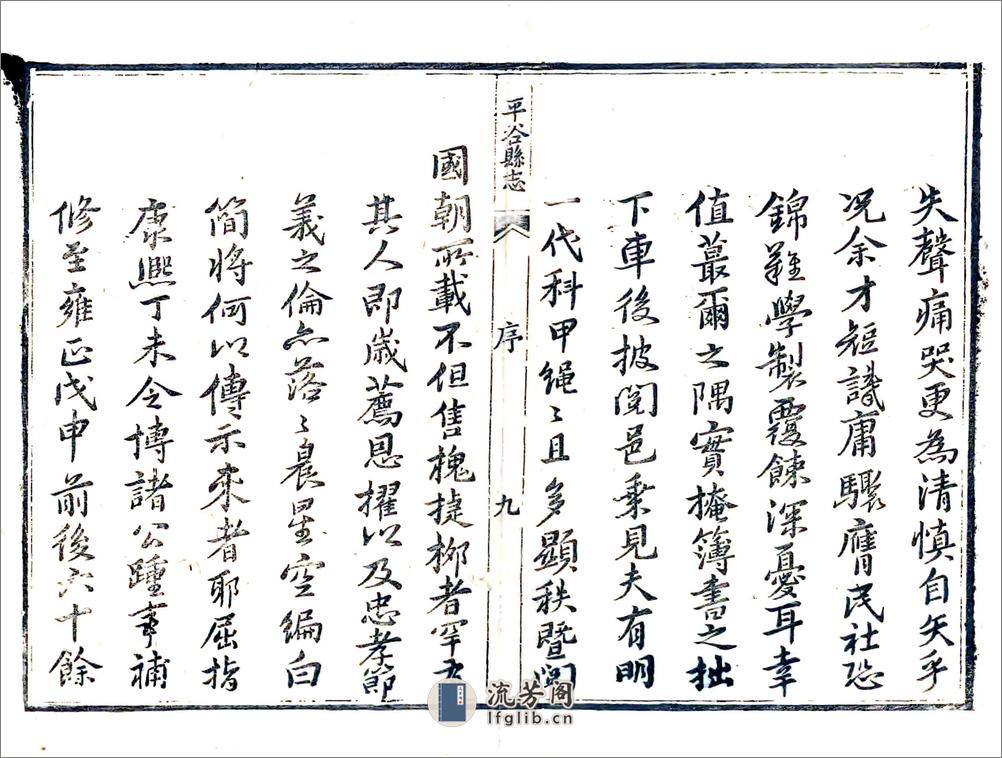 失聲痛哭更為清慎自矢乎
况余才短識庸驟膺民社恐
錦難學製覆餗深憂耳幸
值蕞爾之隅實掩簿書之拙
下車後披閱邑乗見夫有明
一代科甲绳〻且多顯秩暨閱
平谷縣志
序
九
國朝所載不但售槐捷柳者罕
其人即歲薦恩擢以及忠孝節
義之倫亦落〻晨星空編白
簡將何以傳示来者耶屈指
康熙丁未令博諸公踵事補
修至雍正戊申前後六十餘
流芳阁
lfglib.cn